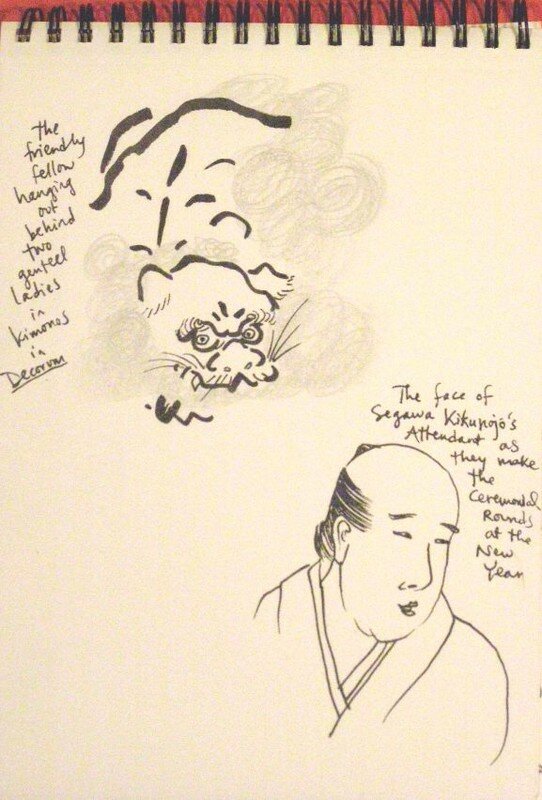 the
friendly
fellow
hanging
out
behind
two
genteel
Ladies
in
kimonos
in
Decorum
The face of
Segawa Kikunojo's
Attendant as
they make
the
Ceremonial
Rounds
at the
New
Year